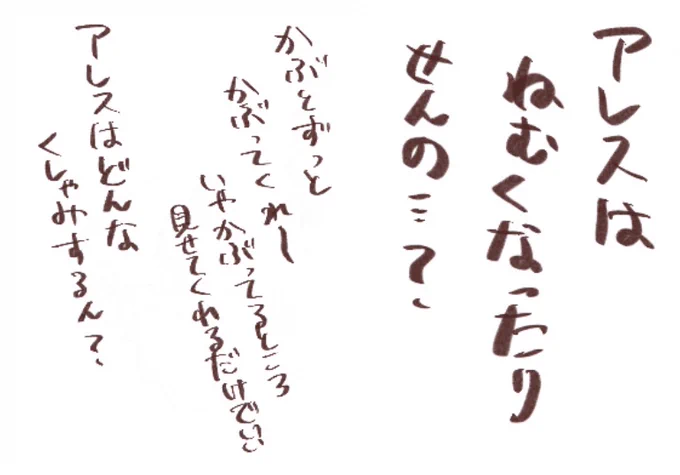 アレスは
ねむくなったり
せんの…?
かぶとずっと
かぶってくれー
いやかぶってるところ
見せてくれるだけでいい
アレスはどんな
くしゃみするん?